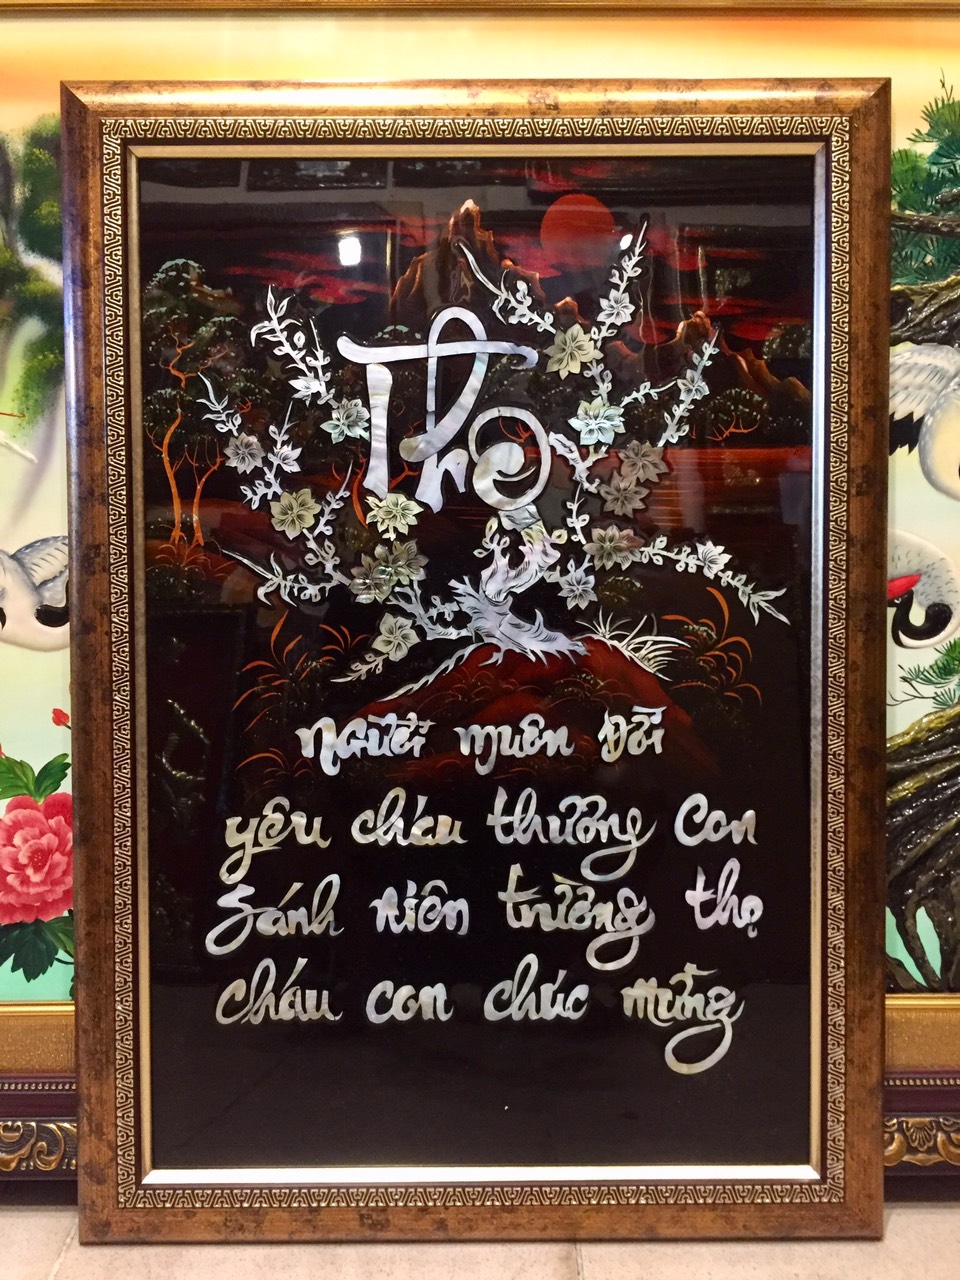 Thọ
Người muôn Đời
yêu cháu thương Con
Sánh niên trường thọ
cháu con chúc mừng